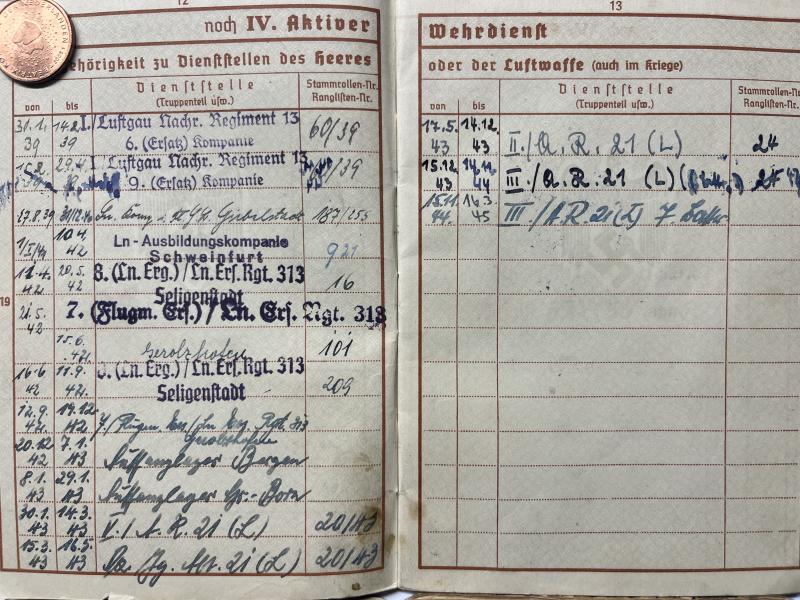 12
noch IV. Aktiver
hörigkeit zu Dienststellen des Heeres
von bis
Dienststelle
(Truppenteil usw.)
Stammrollen-Nr.
Ranglisten-Nr.
31.1. 39 14.2. 39
I. Luftgau Nachr. Regiment 13
6. (Ersatz) Kompanie
60/39
15.2. 29.4.
I Luftgau Nachr. Regiment 13
9. (Ersatz) Kompanie
/39
17.8.39 Giebelstadt 187/255
10.4. 42
Ln - Ausbildungskompanie
Schweinfurt
921
11.4. 42 20.5. 42
8. (Ln. Erg.) / Ln. Ers. Rgt. 313
Seligenstadt
16
19
21.5. 42
7. (Flugm. Ers.) / Ln. Ers. Rgt. 313
15.6. 42
Gerolzhofen
101
16.6 42 11.9. 42.
(Ln. Erg.) / Ln. Ers. Rgt. 313
Seligenstadt
209
12.9. 42 19.12. 42
7./ Flugm. Ers./ Ln. Erg. Rgt. 313
Gerolzhofen
20.12 42 7.1. 43
Auffanglager Bergen
8.1. 43 29.1. 43
Auffanglager Gr.-Born
30.1. 43 14.3. 43
V./ A. R. 21 (L)
20/43
15.3. 43 16.5. 43
Abt. 21 (L)
20/43
13
Wehrdienst
oder der Luftwaffe (auch im Kriege)
von bis
Dienststelle
(Truppenteil usw.)
Stammrollen-Nr.
Ranglisten-Nr.
17.5. 43 14.12. 43
II./A. R. 21 (L)
24
15.12. 43 14.11. 44
III./A. R. 21 (L)
15.11. 44. 16.3. 45
III/A.R. 21 (L) 7. Battr.